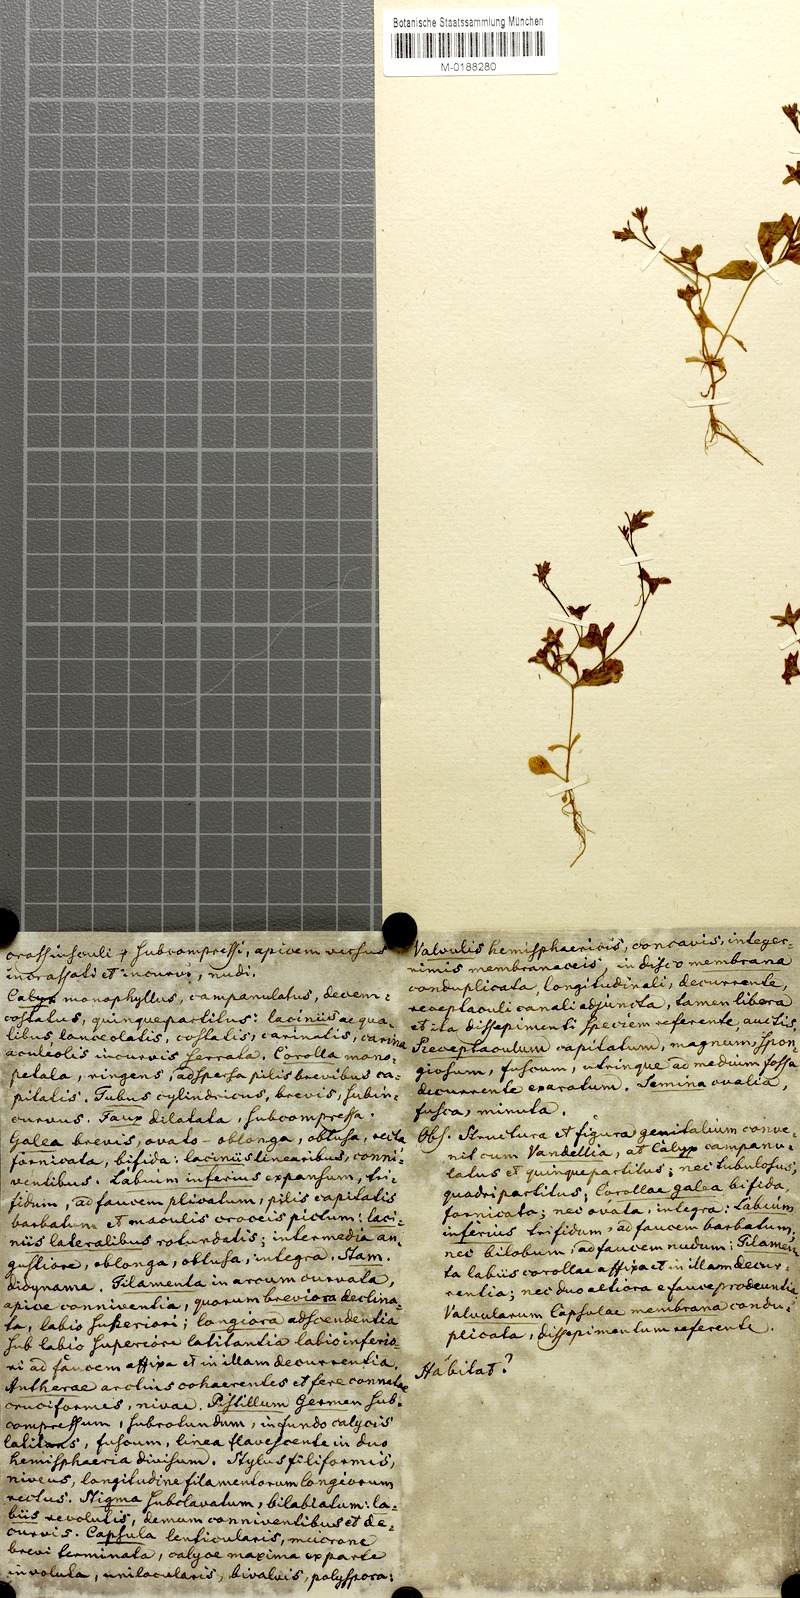 Botanische Staatssammlung München
M-0188280
crassiusculi, subcompressi, apicem versus
incrassati et incurvi, nudi.
Calyx monophyllus, campanulatus, decem-
costatus, quinquepartitus: laciniis aequa-
libus, lanceolatis, costatis, carinatis, carina
aculeolis incurvis serrata. Corolla mono-
petala, ringens, adspersa pilis brevibus ca-
pitatis. Tubus cylindricus, brevis, subin-
curvus. Faux dilatata, subcompressa.
Galea brevis, ovato-oblonga, obtusa, recta
fornicata, bifida: laciniis linearibus, conni-
ventibus. Labium inferius expansum, tri-
fidum, ad faucem plicatum, pilis capitatis
barbatum et maculis croceis pictum: laci-
niis lateralibus rotundatis; intermedia an-
gustiore, oblonga, obtusa, integra. Stam.
didynama. Filamenta in arcum curvata,
apice conniventia, quorum breviora declina-
ta, labio superiori; longiora adscendentia
sub labio superiore latitantia labio inferio-
ri ad faucem affixa et in illam decurrentia.
Antherae arctius cohaerentes et fere connatae
cruciformes, niveae. Pistillum Germen sub-
compressum, subrotundum, in fundo calycis
latitans, fuscum, linea flavescente in duo
hemisphaeria divisum. Stylus filiformis,
niveus, longitudine filamentorum longiorum
rectus. Stigma subclavatum, bilabiatum: la-
biis revolutis, demum conniventibus et de-
curvis. Capsula lenticularis, mucrone
brevi terminata, calyce maxima ex parte
involuta, unilocularis, bivalvis, polysperma:
Valvulis hemisphaericis, concavis, integer-
rimis membranaceis, in disco membrana
conduplicata, longitudinali, decurrente,
receptaculi canali adjuncta, tamen libera
et ita dissepimenti speciem referente, auctis.
Receptaculum capitatum, magnum, spon-
giosum, fuscum, utrinque ad medium fossa
decurrente exaratum. Semina ovalia,
fusca, minuta.
Obs. Structura et figura genitalium conve-
nit cum Vandellia, at Calyx campanu-
latus et quinquepartitus; nec tubulosus,
quadripartitus; Corollae galea bifida,
fornicata; nec ovata, integra: Labium
inferius trifidum, ad faucem barbatum,
nec bilobum, ad faucem nudum: Filamen-
ta labiis corollae affixa et in illam decur-
rentia; nec duo altiora e fauce prodeuntia
Valvularum Capsulae membrana condu-
plicata, dissepimentum referente.
Habitat?